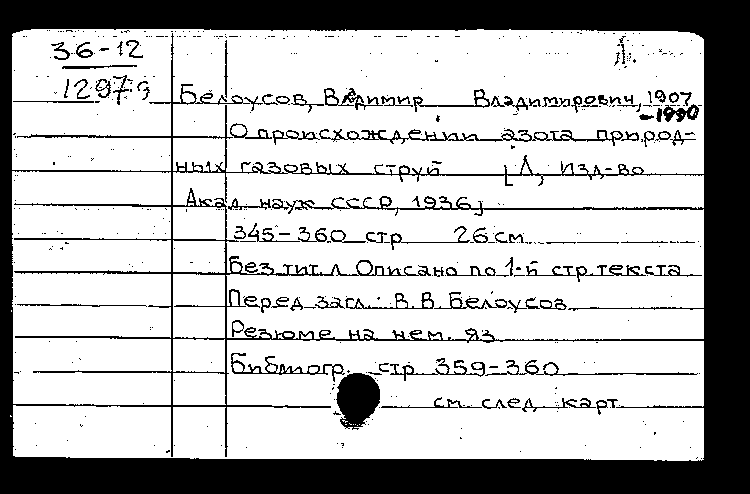 36-12
12973
Белоусов, Владимир Владимирович, 1907
-1990
О происхождении азота природ-
ных газовых струй [Л, Изд-во
Акад. наук СССР, 1936]
345-360 стр 26 см
Без тит. л Описано по 1-й стр. текста
Перед загл.: В. В. Белоусов
Резюме на нем. яз
Библиогр. стр 359-360
см след карт